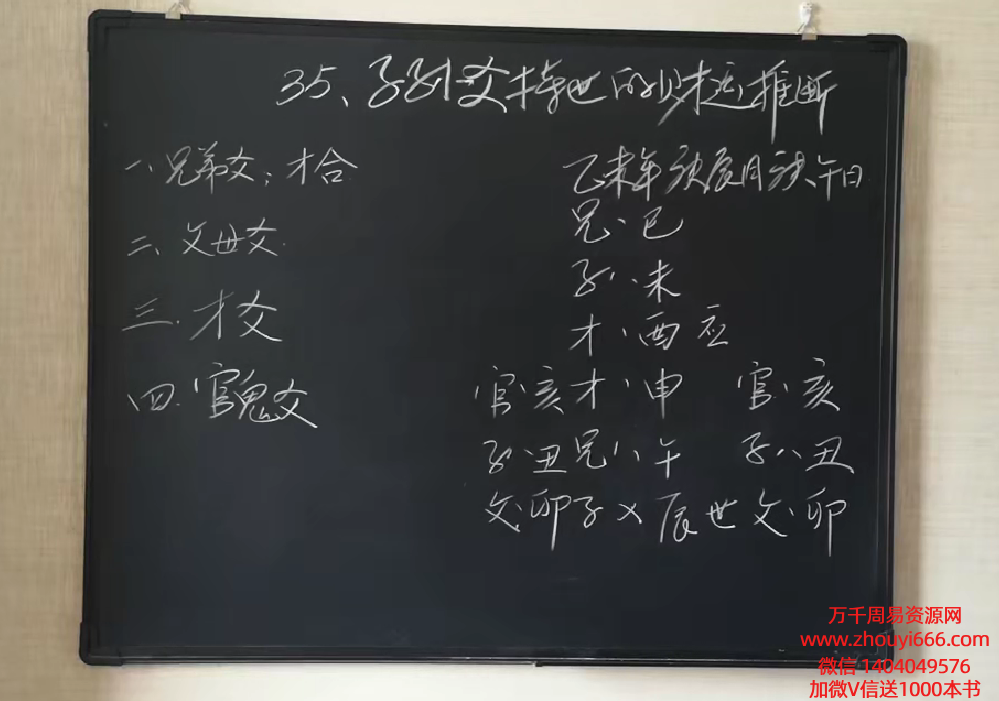 35、子孙爻持世的财运推断
一、兄弟爻：才合
二、父母爻.
三.才爻
四.官鬼爻
乙未年庚辰月庚午日
兄、巳
子八未
才、酉应
官、亥才、申 官、亥
子八丑兄八午 子八丑
父、卯子×辰世父、卯
万千周易资源网
www.zhouyi666.com
微信 1404049576
加微V信送1000本书